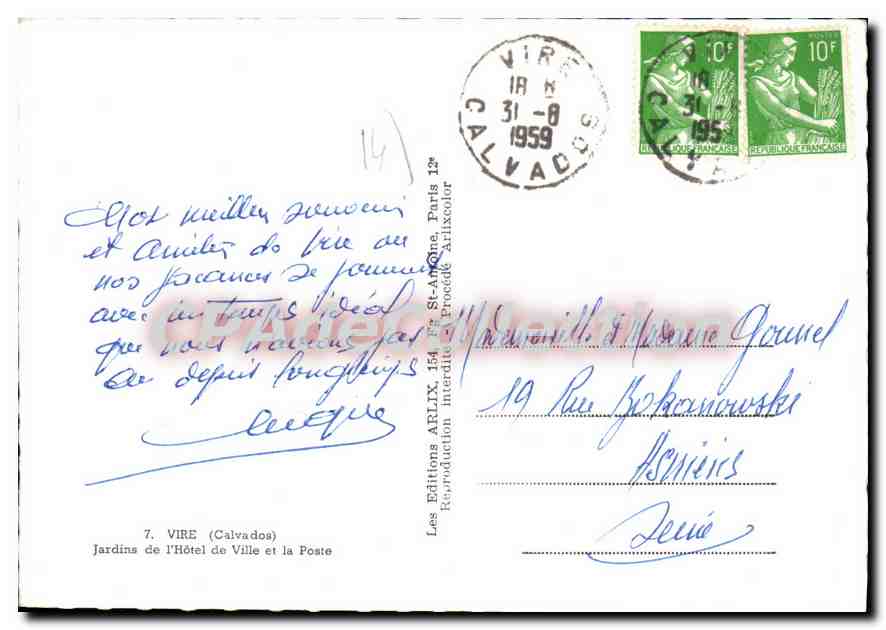 VIRE
18 H
31-8
1959
CALVADOS
10F
POSTES
10F
REPUBLIQUE FRANCAISE
REPUBLIQUE FRANCAISE
14
Nos meilleurs souvenirs
et amitiés de Vire où
nos vacances se passent
avec un temps idéal
que nous n'avions pas
eu depuis longtemps
7. VIRE (Calvados)
Jardins de l'Hôtel de Ville et la Poste
Les Editions ARLIX, 154, Fg St-Antoine, Paris 12e
Reproduction interdite - Procédé Arlixcolor
Mademoiselle et Madame
19 Rue Bokanowski
Asnières
Seine